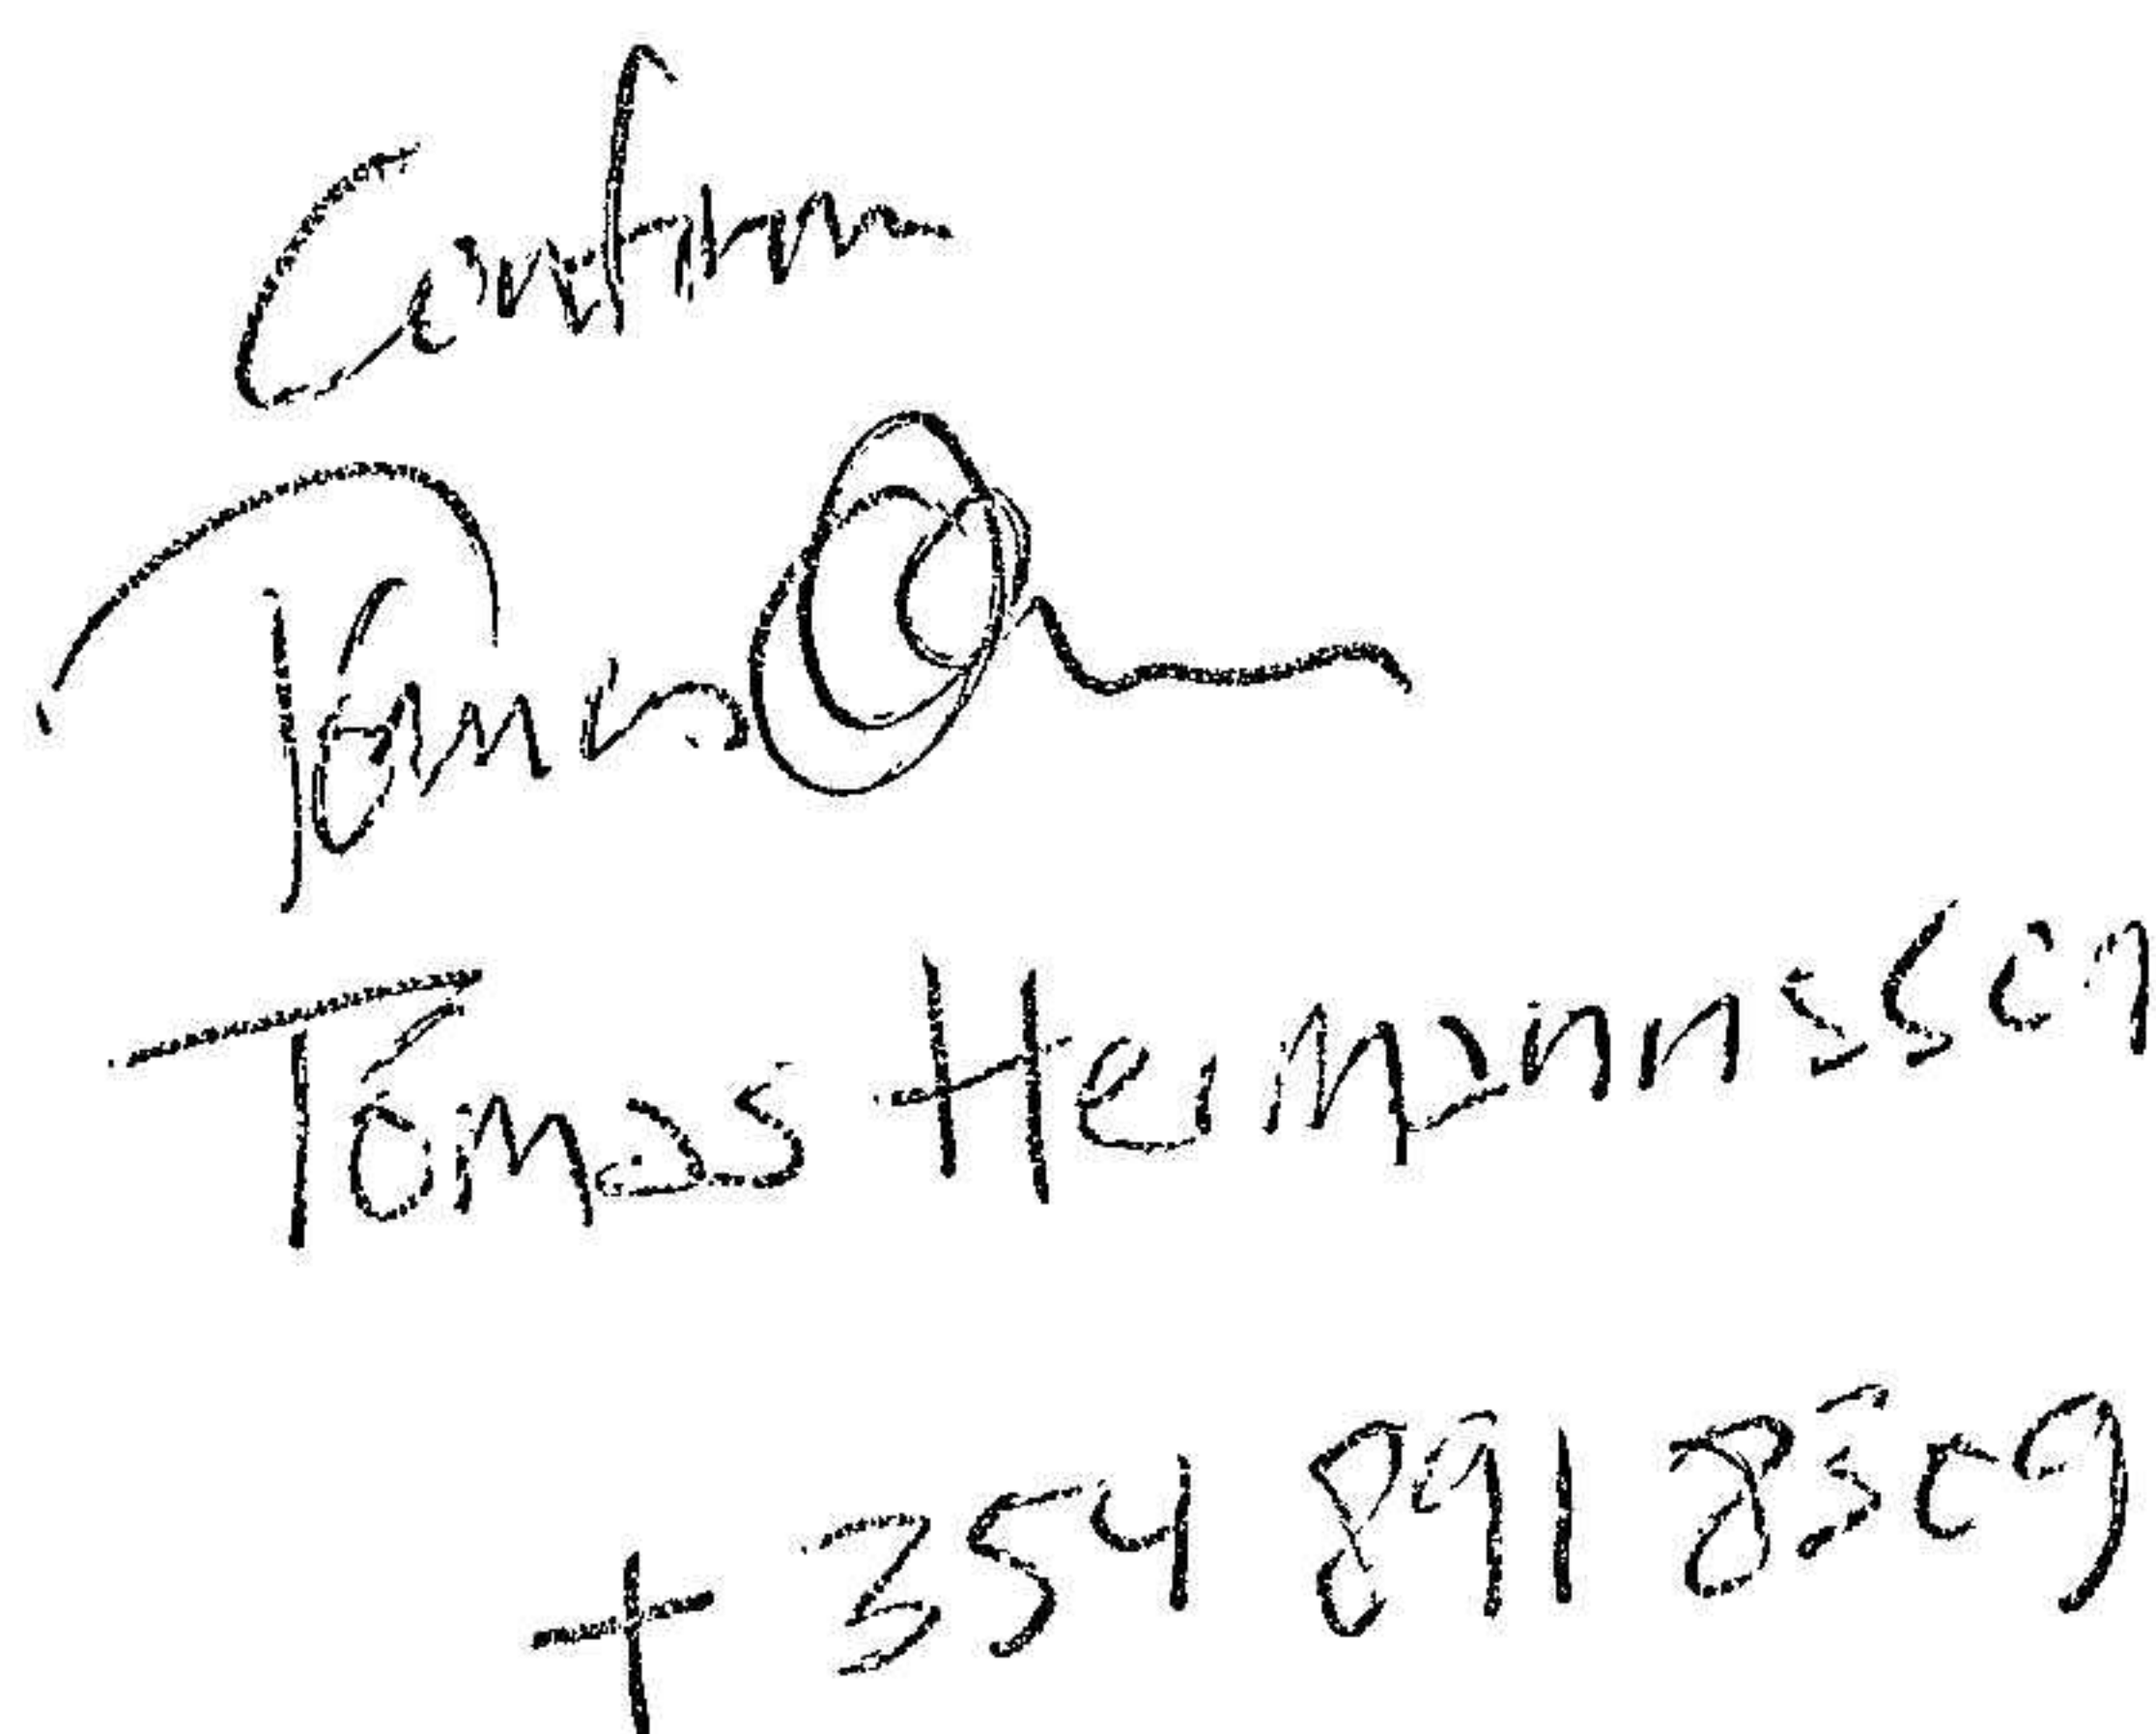 Confirm
Tómas
Tómas Hermannsson
+354 891 8309